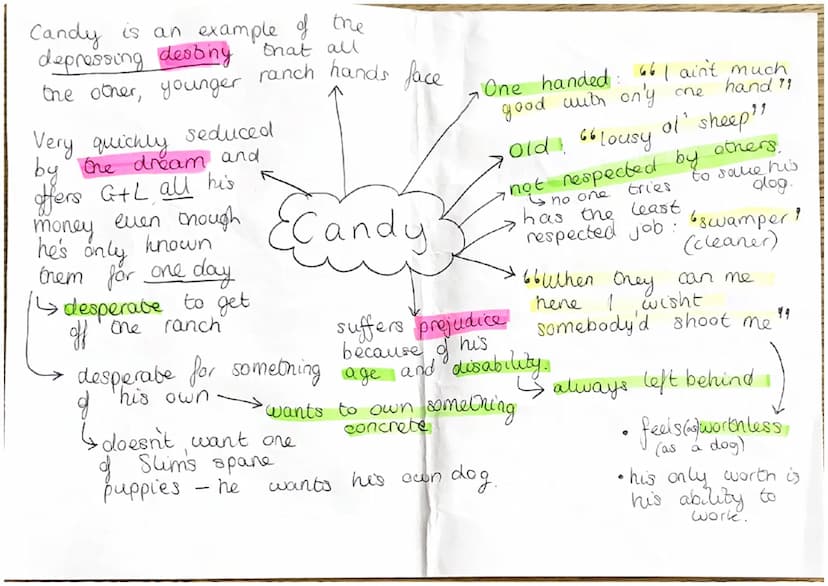 Candy is an example of the
depressing destiny that all
the other, younger ranch hands face
Very quickly seduced
by the dream and
offers G+L all his
money even though
he's only known
them for one day
desperate to get
off the ranch
desperate for something
of his own
wants to own something
concrete
doesn't want one
of Slim's spare
puppies – he wants his own dog.
Candy
One handed: "I ain't much
good with on'y one hand"
Old: "lousy ol' sheep"
not respected by others.
no one tries to save his
dog.
has the least
respected job: "swamper"
(cleaner)
"When they can me
here I wisht
somebody'd shoot me"
• feels (as) worthless
(as a dog)
• his only worth is
his ability to
work.
suffers prejudice
because of his
age and disability.
always left behind